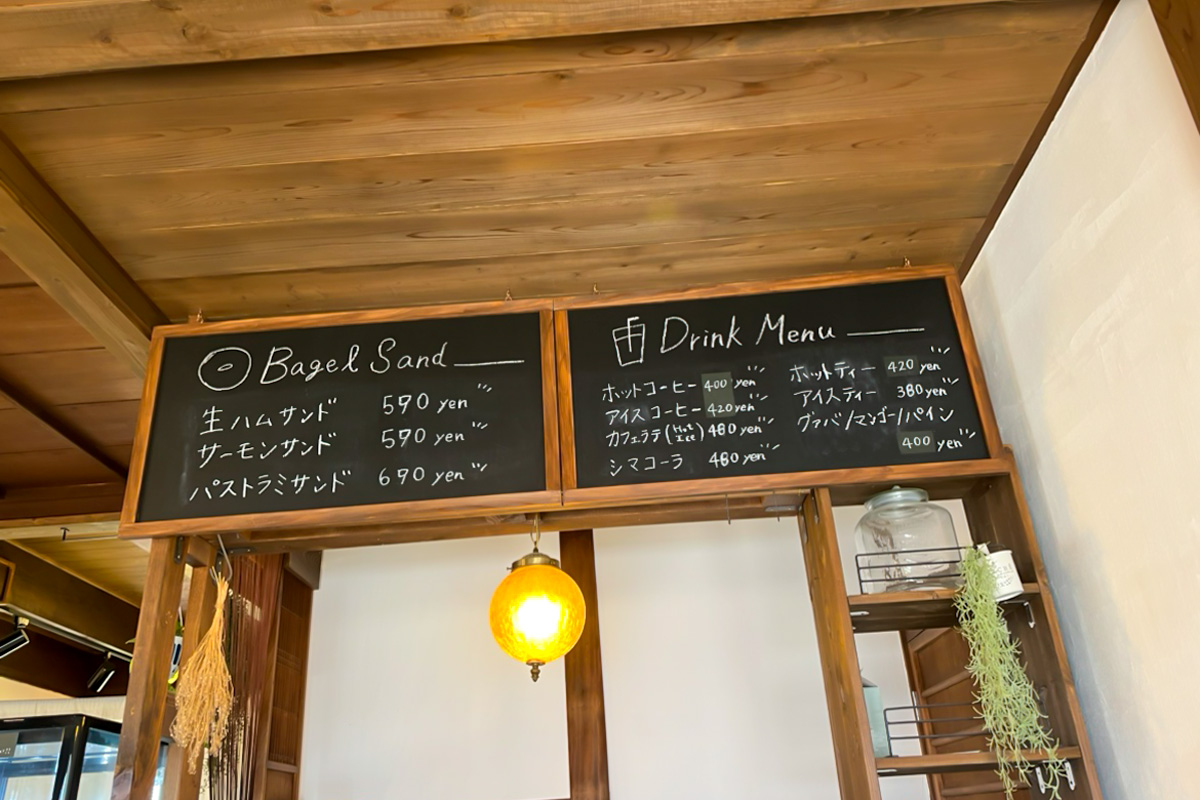 Bagel Sand
生ハムサンド 590 yen
サーモンサンド 590 yen
パストラミサンド 690 yen
Drink Menu
ホットコーヒー 400 yen
アイスコーヒー 420 yen
カフェラテ(Hot Ice) 480 yen
シマコーラ 480 yen
ホットティー 420 yen
アイスティー 380 yen
グァバ/マンゴー/パイン
400 yen